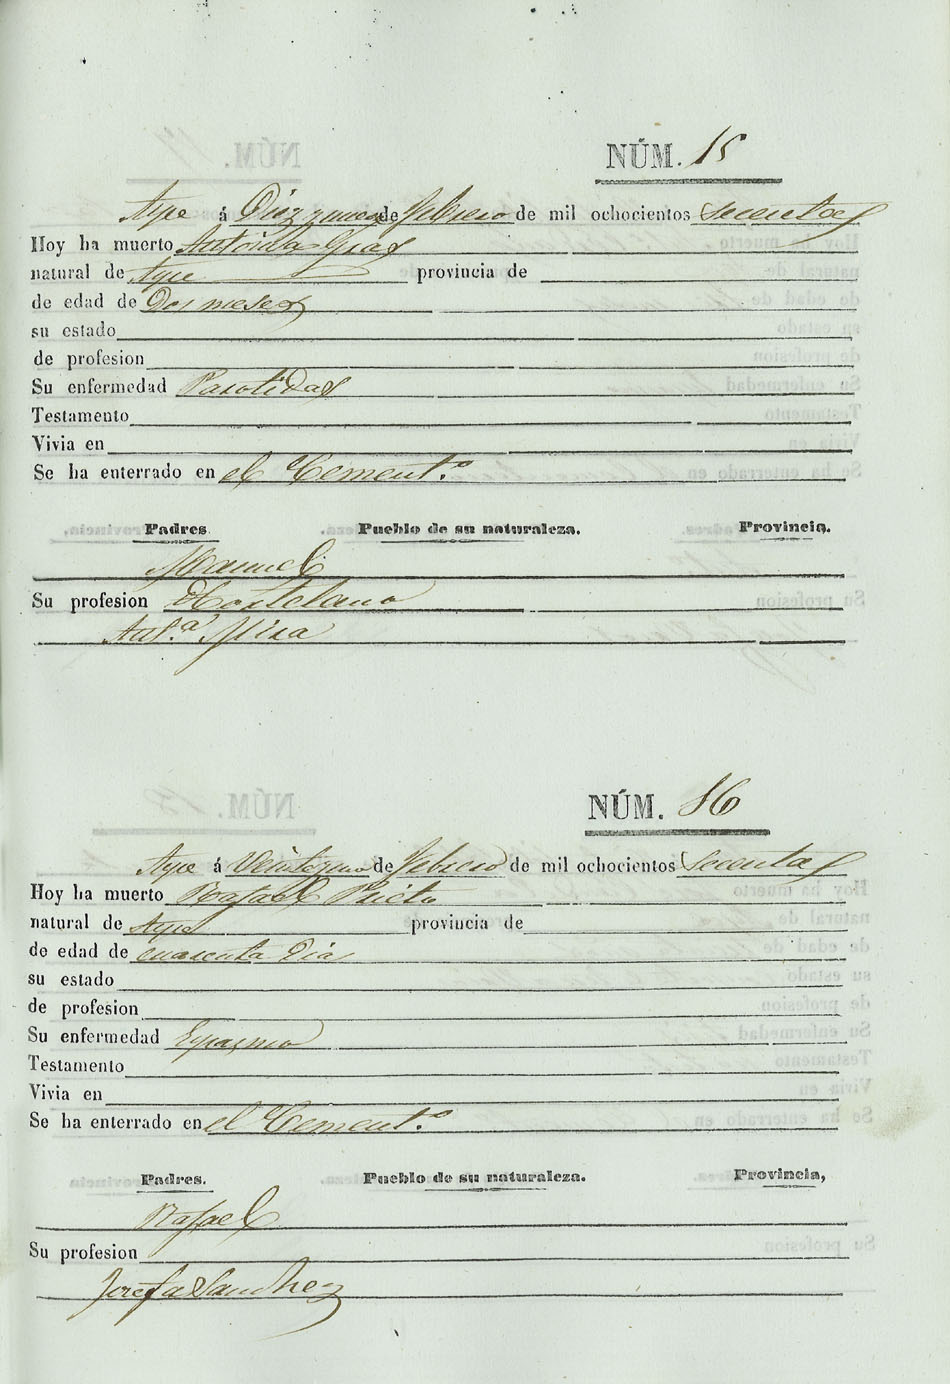 NÚM. 15
Aspe á Diez y nueve de febrero de mil ochocientos secenta
Hoy ha muerto Antonia Gras
natural de Aspe provincia de
de edad de Dos meses
su estado
de profesion
Su enfermedad Parotidas
Testamento
Vivia en
Se ha enterrado en el Cement.º
Padres. Pueblo de su naturaleza. Provincia.
Manuel
Su profesion Hortelano
Ant.ª Mira
NÚM. 16
Aspe á Veintiuno de febrero de mil ochocientos secenta
Hoy ha muerto Rafael Prieto
natural de Aspe provincia de
de edad de cuarenta Dias
su estado
de profesion
Su enfermedad Espasmo
Testamento
Vivia en
Se ha enterrado en el Cement.º
Padres. Pueblo de su naturaleza. Provincia,
Rafael
Su profesion
Josefa Sanchez